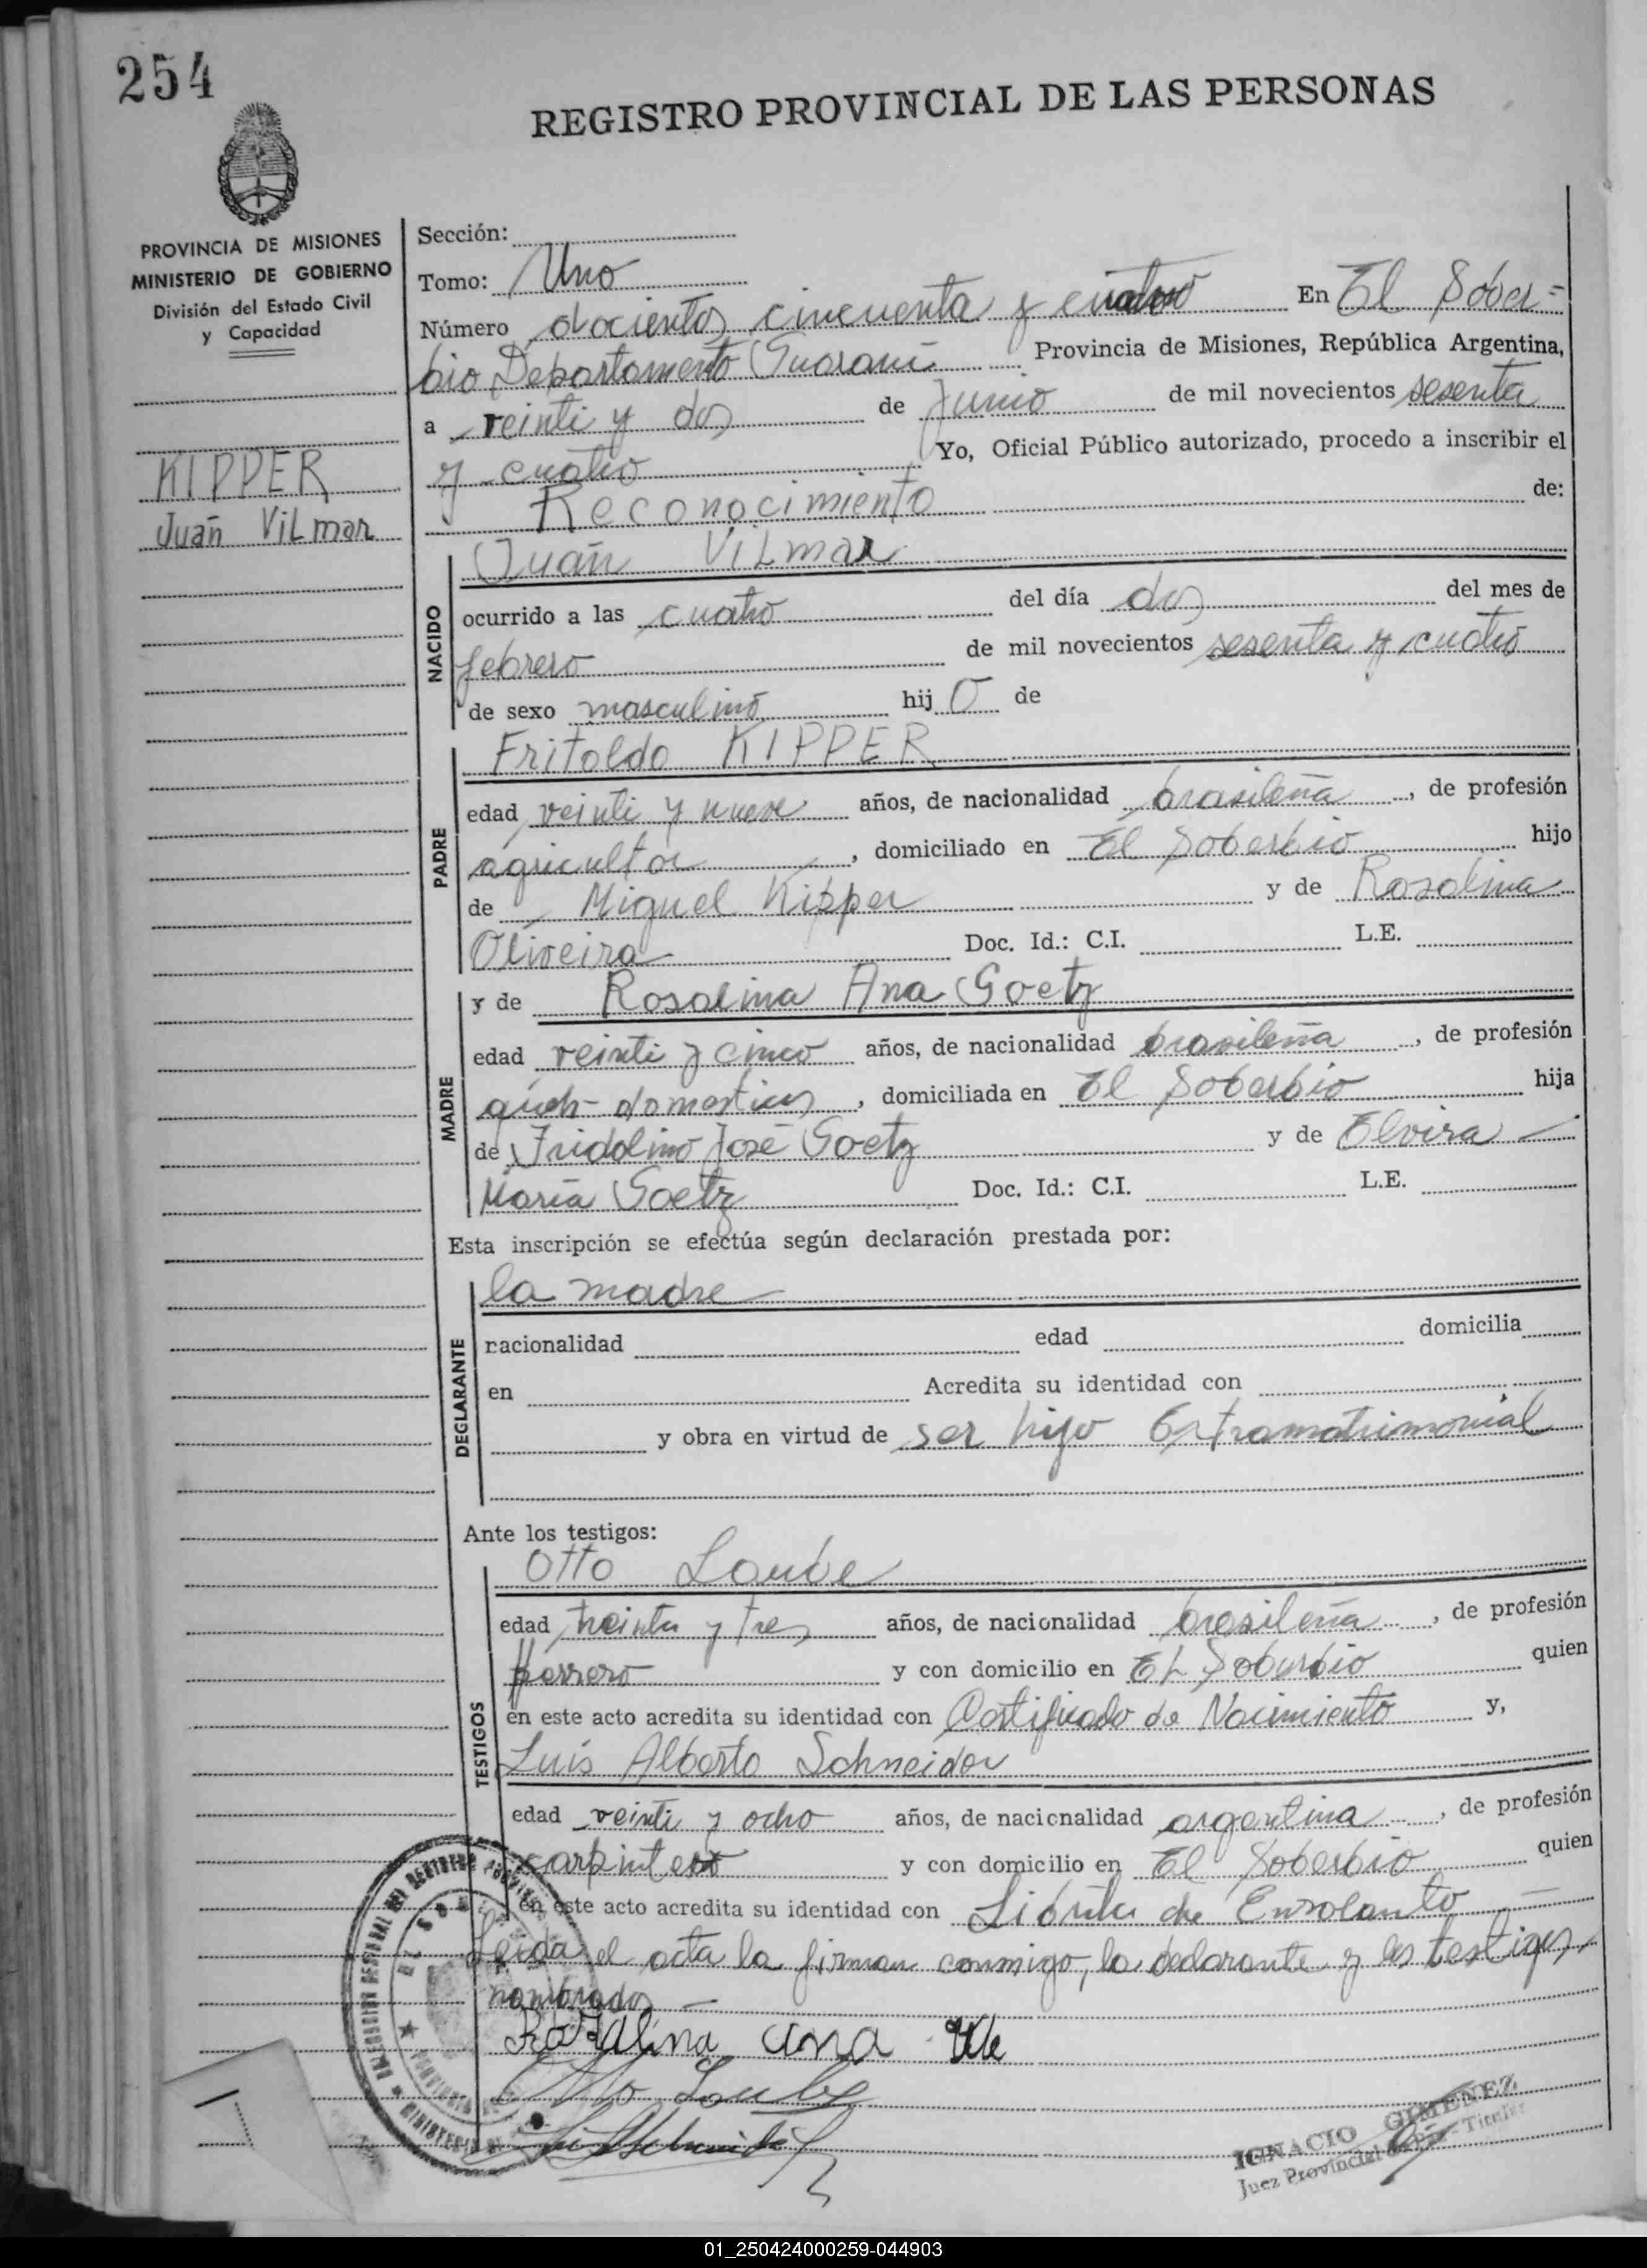 254
REGISTRO PROVINCIAL DE LAS PERSONAS
PROVINCIA DE MISIONES
MINISTERIO DE GOBIERNO
División del Estado Civil
y Capacidad
KIPPER
Juan Vilmar
Sección:
Tomo: Uno
Número docientos cincuenta y cuatro En El Sober=
bio Departamento Guarani Provincia de Misiones, República Argentina,
a veinti y dos de Junio de mil novecientos sesenta
y cuatro Yo, Oficial Público autorizado, procedo a inscribir el
Reconocimiento de:
NACIDO
Juan Vilmar
ocurrido a las cuatro del día dos del mes de
febrero de mil novecientos sesenta y cuatro
de sexo masculino hij O de
PADRE
Fritoldo KIPPER
edad veinti y nueve años, de nacionalidad brasileña, de profesión
agricultor, domiciliado en El Soberbio hijo
de Miguel Kipper y de Rosalina
Oliveira Doc. Id.: C.I. L.E.
MADRE
y de Rosalina Ana Goetz
edad veinti y cinco años, de nacionalidad brasileña, de profesión
domesticos, domiciliada en El Soberbio hija
de Fridolino José Goetz y de Elvira
María Goetz Doc. Id.: C.I. L.E.
Esta inscripción se efectúa según declaración prestada por:
DECLARANTE
la madre
nacionalidad edad domicilia
en Acredita su identidad con
y obra en virtud de ser hijo Extramatrimonial
Ante los testigos:
TESTIGOS
Otto Laube
edad treinta y tres años, de nacionalidad brasileña, de profesión
herrero y con domicilio en El Soberbio quien
en este acto acredita su identidad con Certificado de Nacimiento y,
Luis Alberto Schneider
edad veinti y ocho años, de nacionalidad argentina, de profesión
carpintero y con domicilio en El Soberbio quien
en este acto acredita su identidad con Libreta de Enrolanto
Leida el acta la firman conmigo, la declarante y los testigos
nombrados —
Rosalina ana
Otto Laube
IGNACIO GIMENEZ
Juez Provincial de Paz - Titular
01_250424000259-044903